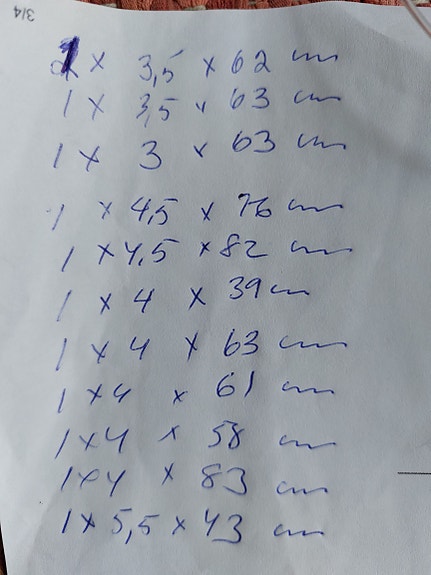 3/4
1 x 3,5 x 62 cm
1 x 3,5 x 63 cm
1 x 3 x 63 cm
1 x 4,5 x 76 cm
1 x 4,5 x 82 cm
1 x 4 x 39 cm
1 x 4 x 63 cm
1 x 4 x 61 cm
1 x 4 x 58 cm
1 x 4 x 83 cm
1 x 5,5 x 43 cm